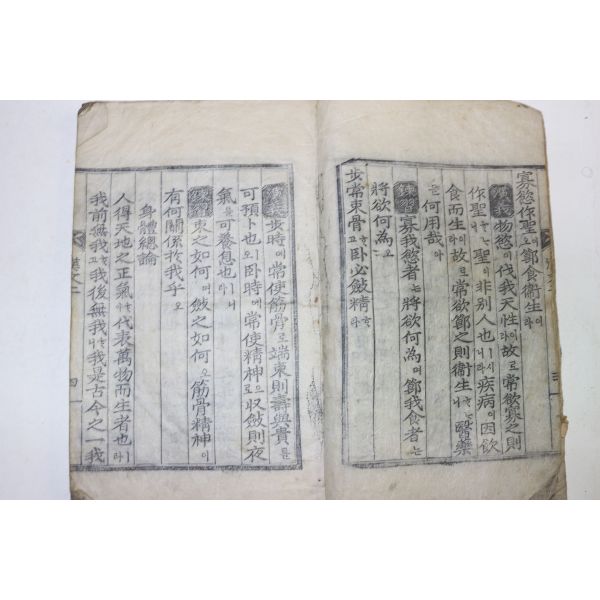 寡慾作聖오 節食衛生이라
物慾이 伐我天性이라 故로 常欲寡之則
作聖ᄒᆞᄂᆞ니 聖이 非別人也ㅣ시니라 疾病이 因飮
食而生이라 故로 常欲節之則衛生ᄒᆞᄂᆞ니 醫藥
을 何用哉아
練習 寡我慾者ᄂᆞᆫ 將欲何爲며 節我食者ᄂᆞᆫ
將欲何爲오
步常束骨ᄒᆞ고 臥必斂精ᄒᆞ라
步時에 常使筋骨로 端束則壽與貴를
可預卜也오 臥時에 常使精神으로 收斂則夜
氣를 可養息也ㅣ니라
練習 束之如何며 斂之如何오 筋骨精神이
有何關係於我乎오
身體總論
人得天地之正氣ᄒᆞ야 代表萬物而生者也ㅣ라
我前無我ᄒᆞ고 我後無我ᄒᆞ니 我是古今之一我
漢文二 四